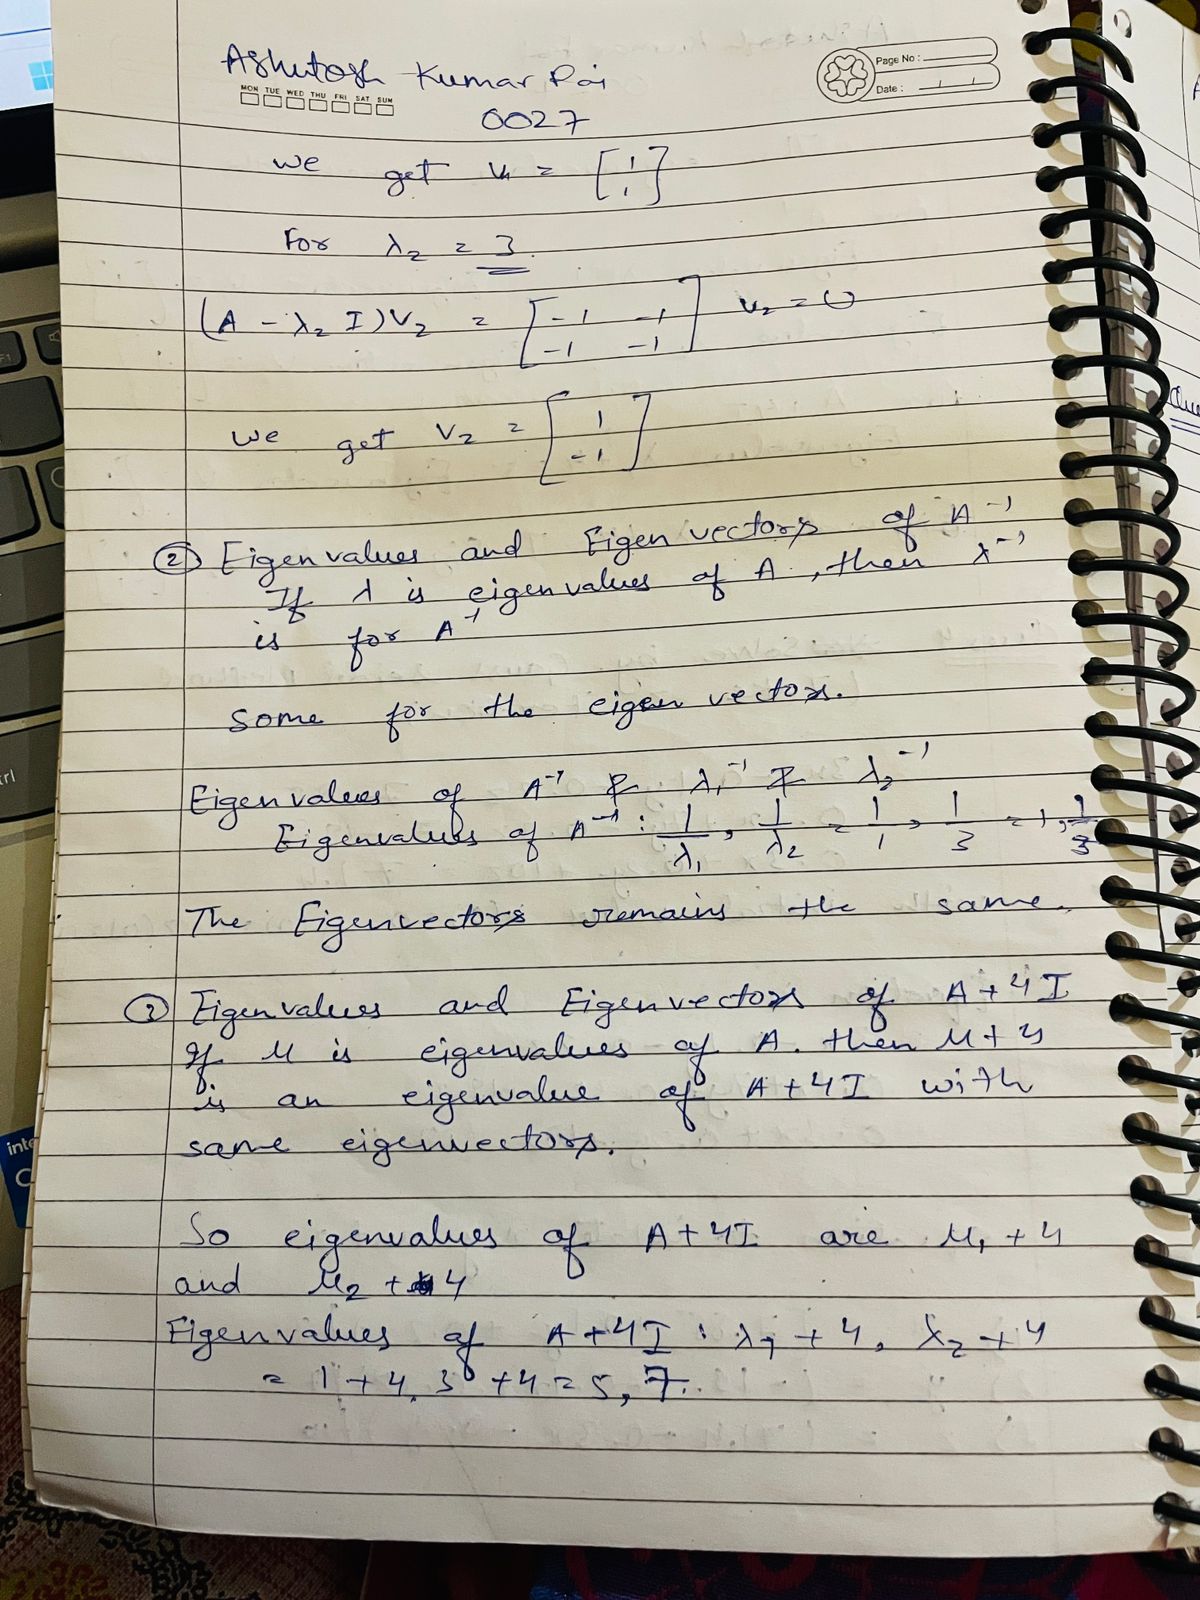 Ashutosh Kumar Rai
MON TUE WED THU FRI SAT SUN
Page No :
Date :
0027
we get v₁ = [1 1]
For λ₂ = 3
(A - λ₂ I)V₂ = [-1 -1 -1 -1] v₂ = 0
we get V₂ = [1 -1]
② Eigenvalues and Eigen vectors of A⁻¹
If λ is eigenvalues of A, then λ⁻¹
is for A⁻¹
Some for the eigen vectors.
Eigenvalues of A⁻¹ λ₁⁻¹ λ₂⁻¹
Eigenvalues of A⁻¹ : 1/λ₁, 1/λ₂ = 1/1, 1/3 = 1, 1/3
The Eigenvectors remains the same.
③ Eigenvalues and Eigenvectors of A + 4I
If M is eigenvalues of A. then M + 4
is an eigenvalue of A + 4I with
same eigenvectors.
So eigenvalues of A + 4I are M₁ + 4
and M₂ + 4
Eigenvalues of A + 4I : λ₁ + 4, λ₂ + 4
= 1 + 4, 3 + 4 = 5, 7.